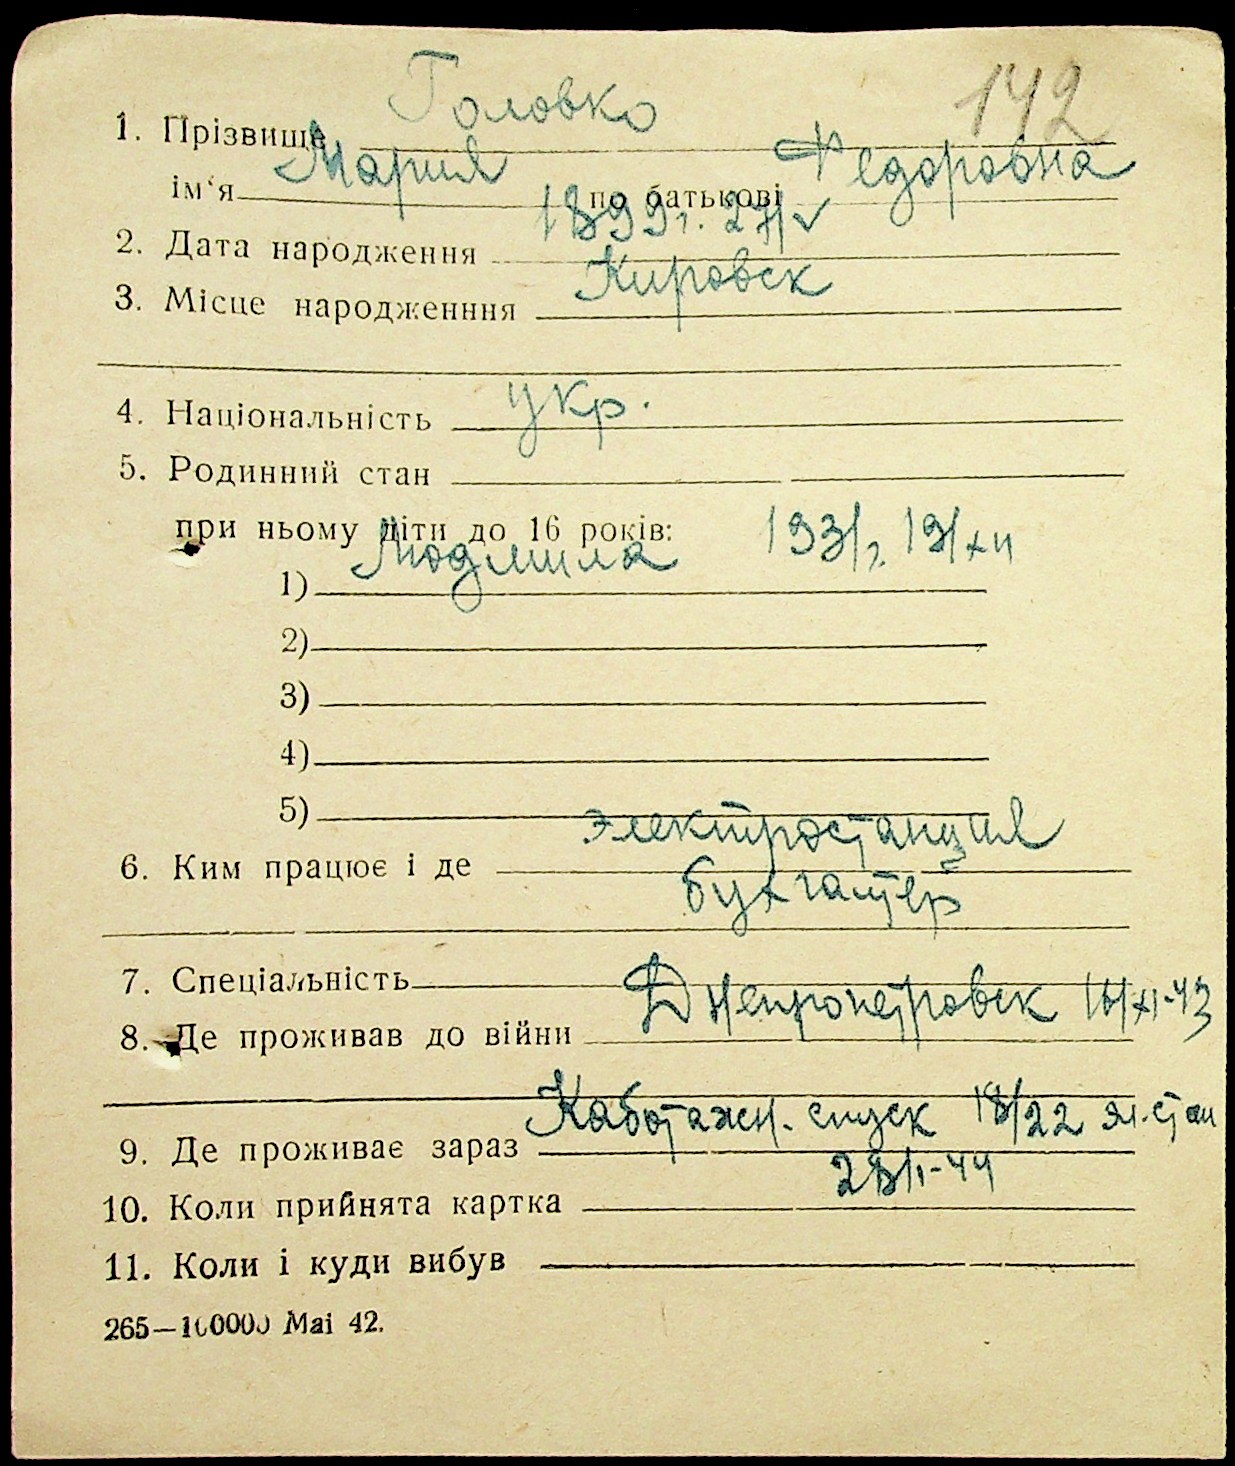 Головко 142
1. Прізвище
Мария Федоровна
ім'я по батькові
1899г. 27/V
2. Дата народження
Кировск
3. Місце народженння
4. Національність укр.
5. Родинний стан
при ньому діти до 16 років:
1) Людмила 1931г. 19/XII
2)
3)
4)
5)
электростанция
6. Ким працює і де
бухгалтер
7. Спеціальність
Днепропетровск 16/XI-43
8. Де проживав до війни
Каботажн. спуск 18/22
9. Де проживає зараз
28/I-44
10. Коли прийнята картка
11. Коли і куди вибув
265—100000 Mai 42.